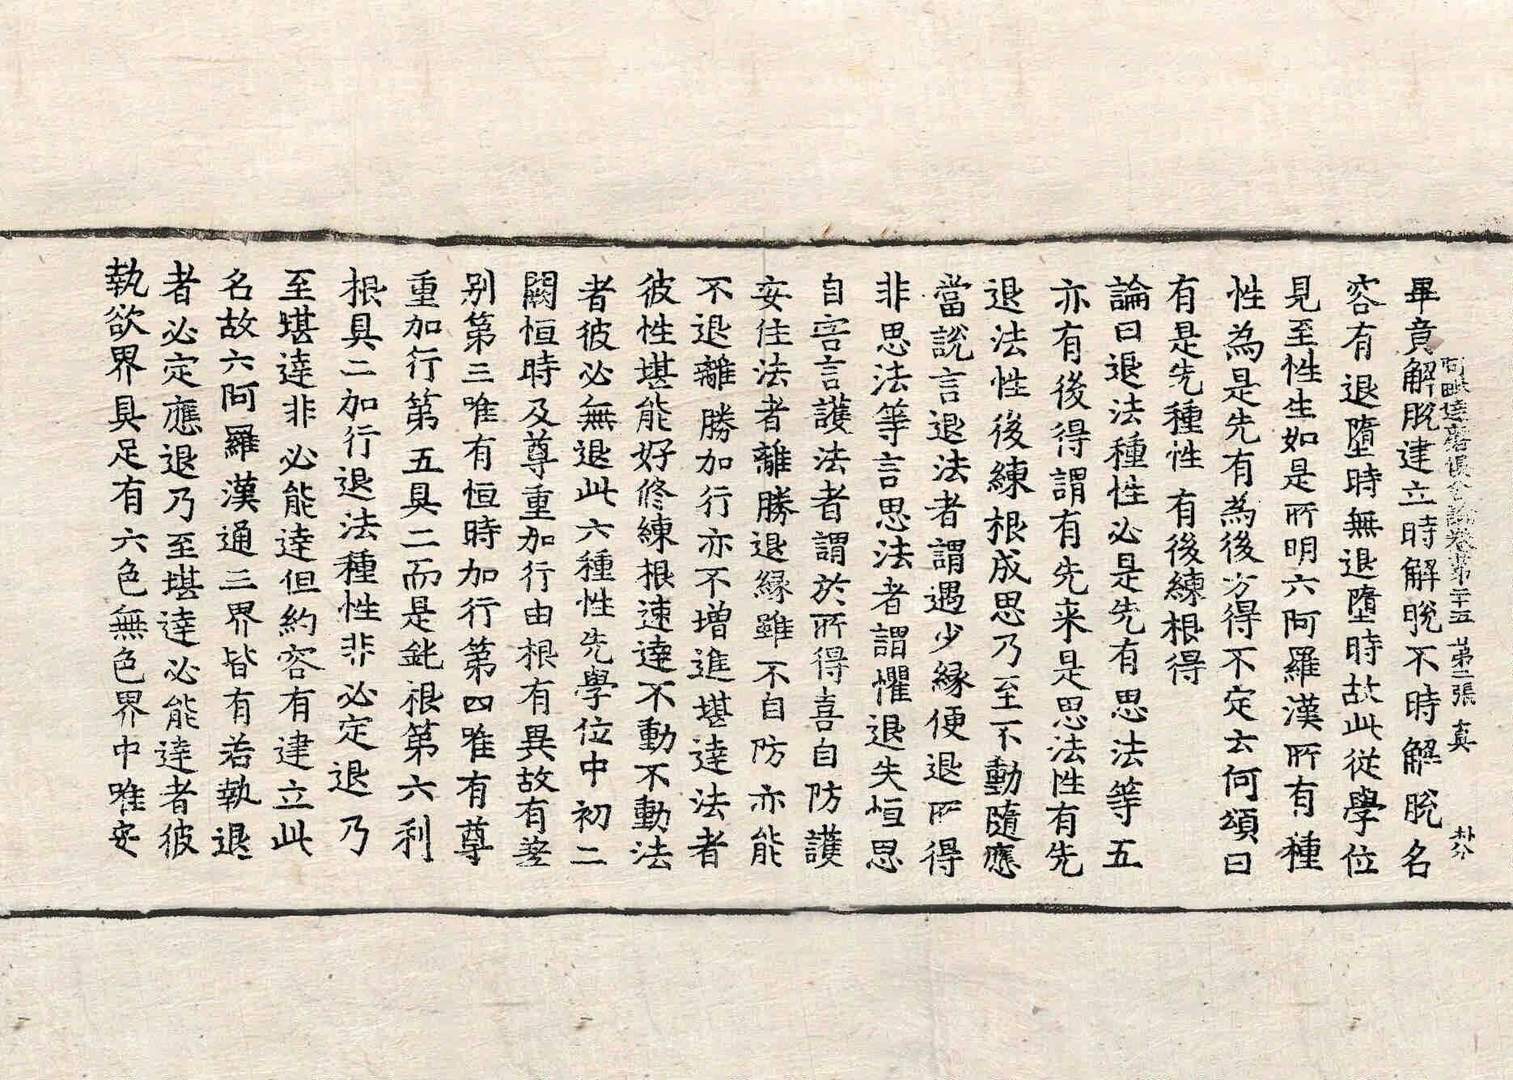 阿毗達磨俱舍論卷第二十五 第二張 真 朴分
畢竟解脫建立時解脫不時解脫名
容有退墮時無退墮時故此從學位
見至性生如是所明六阿羅漢所有種
性為是先有為後方得不定云何頌曰
有是先種性 有後練根得
論曰退法種性必是先有思法等五
亦有後得謂有先来是思法性有先
退法性後練根成思乃至不動隨應
當說言退法者謂遇少緣便退所得
非思法等言思法者謂懼退失恒思
自害言護法者謂於所得喜自防護
安住法者離勝退緣雖不自防亦能
不退離勝加行亦不增進堪達法者
彼性堪能好修練根速達不動不動法
者彼必無退此六種性先學位中初二
闕恒時及尊重加行由根有異故有差
別第三唯有恒時加行第四唯有尊
重加行第五具二而是鈍根第六利
根具二加行退法種性非必定退乃
至堪達非必能達但約容有建立此
名故六阿羅漢通三界皆有若執退
者必定應退乃至堪達必能達者彼
執欲界具足有六色無色界中唯安